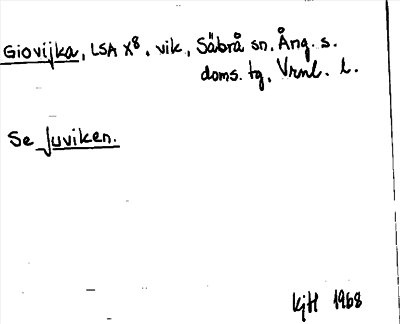 Giovijka, LSA X8. vik, Säbrå sn. Ång. s.
doms. tg, Vrnl. l.
Se Juviken.
KjH 1968